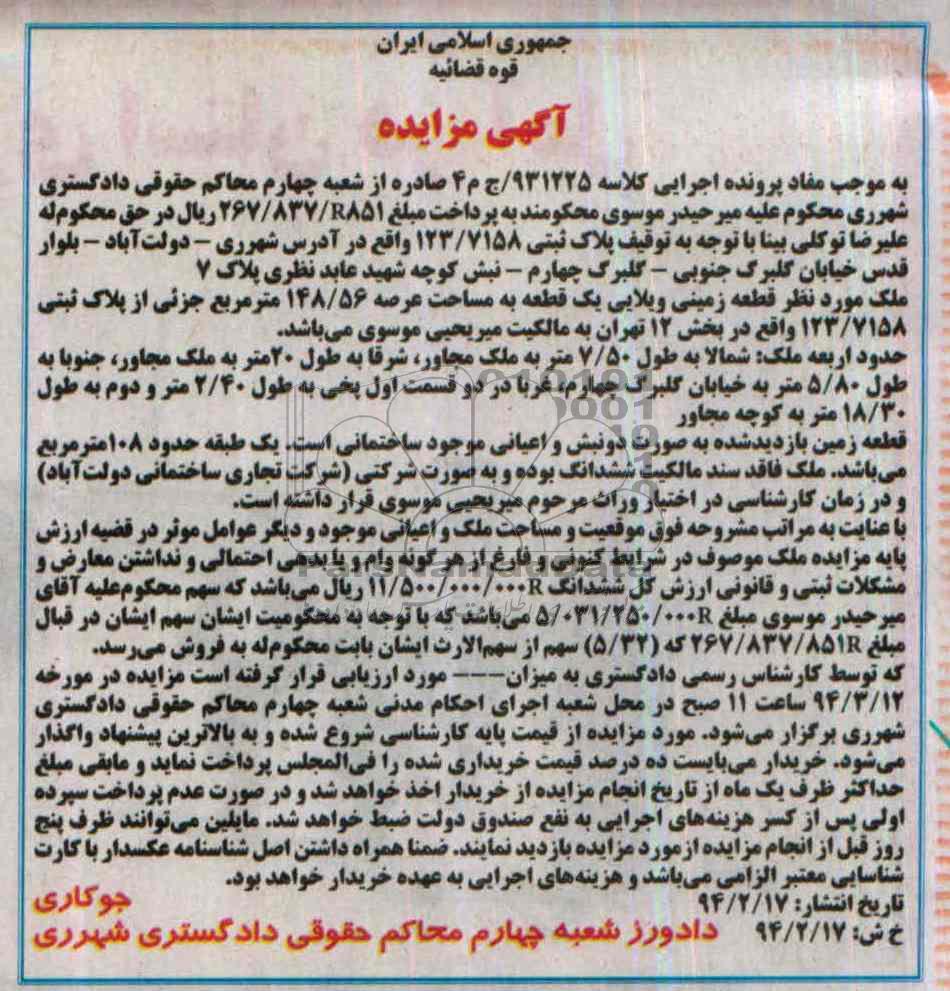 جمهوری اسلامی ایران
قوه قضائیه
آگهی مزایده
به موجب مفاد پرونده اجرایی کلاسه ۹۳۱۲۲۵/ج م۴ صادره از شعبه چهارم محاکم حقوقی دادگستری
شهرری محکوم علیه میر حیدر موسوی محکومند به پرداخت مبلغ ۲۶۷/۸۳۷/R۸۵۱ ریال در حق محکوم‌له
علیرضا توکلی بینا با توجه به توقیف پلاک ثبتی ۱۲۳/۷۱۵۸ واقع در آدرس شهرری – دولت‌آباد – بلوار
قدس خیابان گلبرگ جنوبی – گلبرگ چهارم – نبش کوچه شهید عابد نظری پلاک ۷
ملک مورد نظر قطعه زمینی ویلایی یک قطعه به مساحت عرصه ۱۴۸/۵۶ مترمربع جزئی از پلاک ثبتی
۱۲۳/۷۱۵۸ واقع در بخش ۱۲ تهران به مالکیت میریحیی موسوی می‌باشد.
حدود اربعه ملک: شمالا به طول ۷/۵۰ متر به ملک مجاور، شرقا به طول ۲۰متر به ملک مجاور، جنوبا به
طول ۵/۸۰ متر به خیابان گلبرگ چهارم، غربا در دو قسمت اول پخی به طول ۲/۴۰ متر و دوم به طول
۱۸/۳۰ متر به کوچه مجاور
قطعه زمین بازدیدشده به صورت دونبش و اعیانی موجود ساختمانی است. یک طبقه حدود ۱۰۸مترمربع
می‌باشد. ملک فاقد سند مالکیت ششدانگ بوده و به صورت شرکتی (شرکت تجاری ساختمانی دولت‌آباد)
و در زمان کارشناسی در اختیار وراث مرحوم میریحیی موسوی قرار داشته است.
با عنایت به مراتب مشروحه فوق موقعیت و مساحت ملک و اعیانی موجود و دیگر عوامل موثر در قضیه ارزش
پایه مزایده ملک موصوف در شرایط کنونی و فارغ از هر گونه وام و یا بدهی احتمالی و نداشتن معارض و
مشکلات ثبتی و قانونی ارزش کل ششدانگ ۱۱/۵۰۰/۰۰۰/۰۰۰R ریال می‌باشد که سهم محکوم‌علیه آقای
میرحیدر موسوی مبلغ ۵/۰۳۱/۲۵۰/۰۰۰R می‌باشد که با توجه به محکومیت ایشان سهم ایشان در قبال
مبلغ ۲۶۷/۸۳۷/۸۵۱R که (۵/۳۲) سهم از سهم‌الارث ایشان بابت محکوم‌له به فروش می‌رسد.
که توسط کارشناس رسمی دادگستری به میزان——— مورد ارزیابی قرار گرفته است مزایده در مورخه
۹۴/۳/۱۲ ساعت ۱۱ صبح در محل شعبه اجرای احکام مدنی شعبه چهارم محاکم حقوقی دادگستری
شهرری برگزار می‌شود. مورد مزایده از قیمت پایه کارشناسی شروع شده و به بالاترین پیشنهاد واگذار
می‌شود. خریدار می‌بایست ده درصد قیمت خریداری شده را فی‌المجلس پرداخت نماید و مابقی مبلغ
حداکثر ظرف یک ماه از تاریخ انجام مزایده از خریدار اخذ خواهد شد و در صورت عدم پرداخت سپرده
اولی پس از کسر هزینه‌های اجرایی به نفع صندوق دولت ضبط خواهد شد. مایلین می‌توانند ظرف پنج
روز قبل از انجام مزایده ازمورد مزایده بازدید نمایند. ضمنا همراه داشتن اصل شناسنامه عکسدار با کارت
شناسایی معتبر الزامی می‌باشد و هزینه‌های اجرایی به عهده خریدار خواهد بود.
تاریخ انتشار: ۹۴/۲/۱۷
جوکاری
خ ش: ۹۴/۲/۱۷ دادورز شعبه چهارم محاکم حقوقی دادگستری شهرری